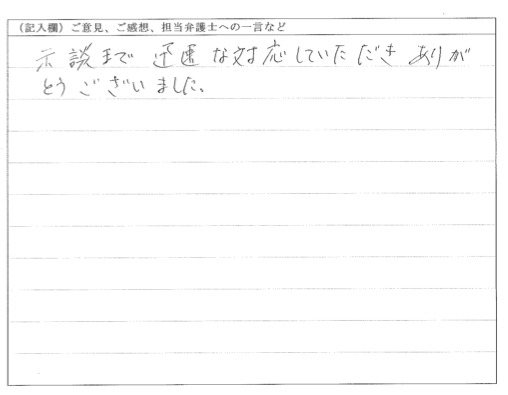 （記入欄）ご意見、ご感想、担当弁護士への一言など
示談まで迅速な対応していただきありが
とうございました。